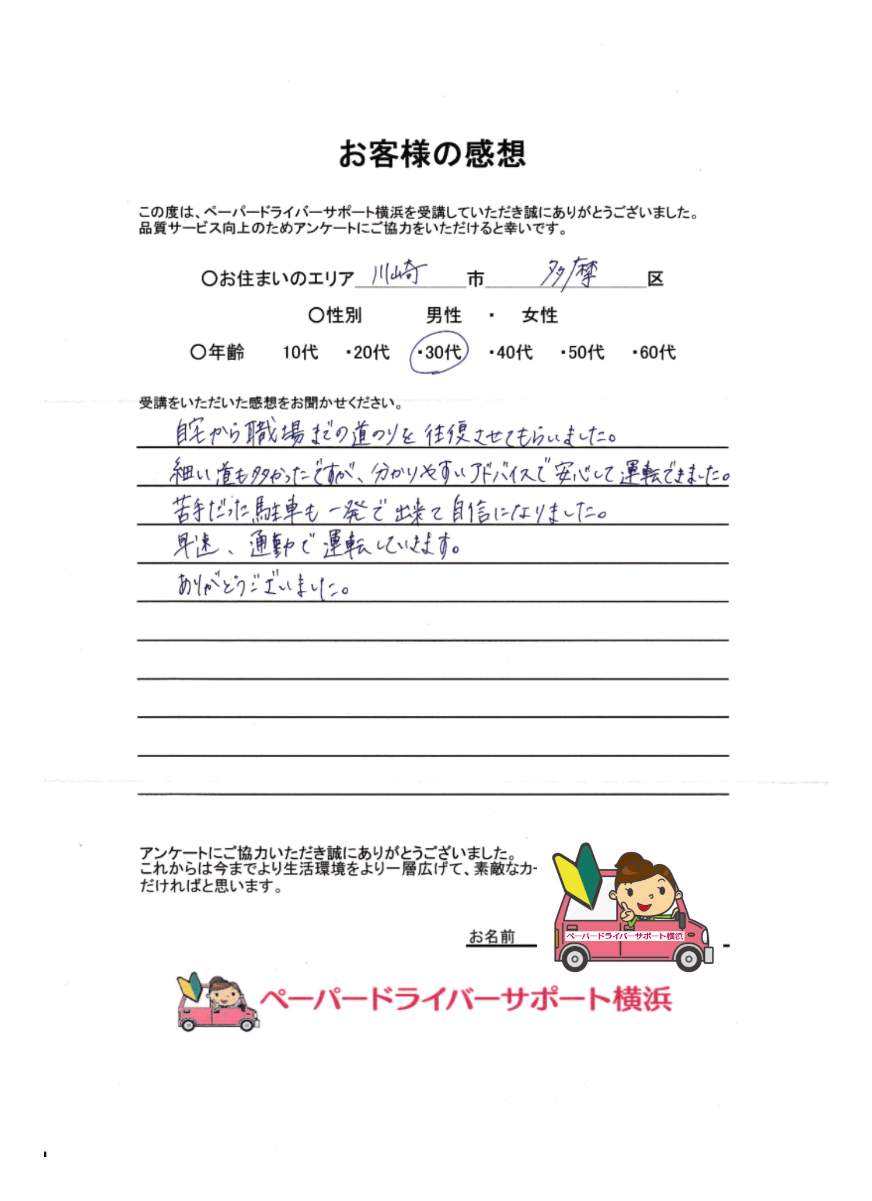 お客様の感想
この度は、ペーパードライバーサポート横浜を受講していただき誠にありがとうございました。
品質サービス向上のためアンケートにご協力をいただけると幸いです。
〇お住まいのエリア 川崎 市 多摩 区
〇性別 男性 ・ 女性
〇年齢 10代 ・20代 ・30代 ・40代 ・50代 ・60代
受講をいただいた感想をお聞かせください。
自宅から職場までの道のりを往復させてもらいました。
細い道も多かったですが、分かりやすいアドバイスで安心して運転できました。
苦手だった駐車も一発で出来て自信になりました。
早速、通勤で運転しています。
ありがとうございました。
アンケートにご協力いただき誠にありがとうございました。
これからは今までより生活環境をより一層広げて、素敵なカ
だければと思います。
お名前
ペーパードライバーサポート横浜
ペーパードライバーサポート横浜